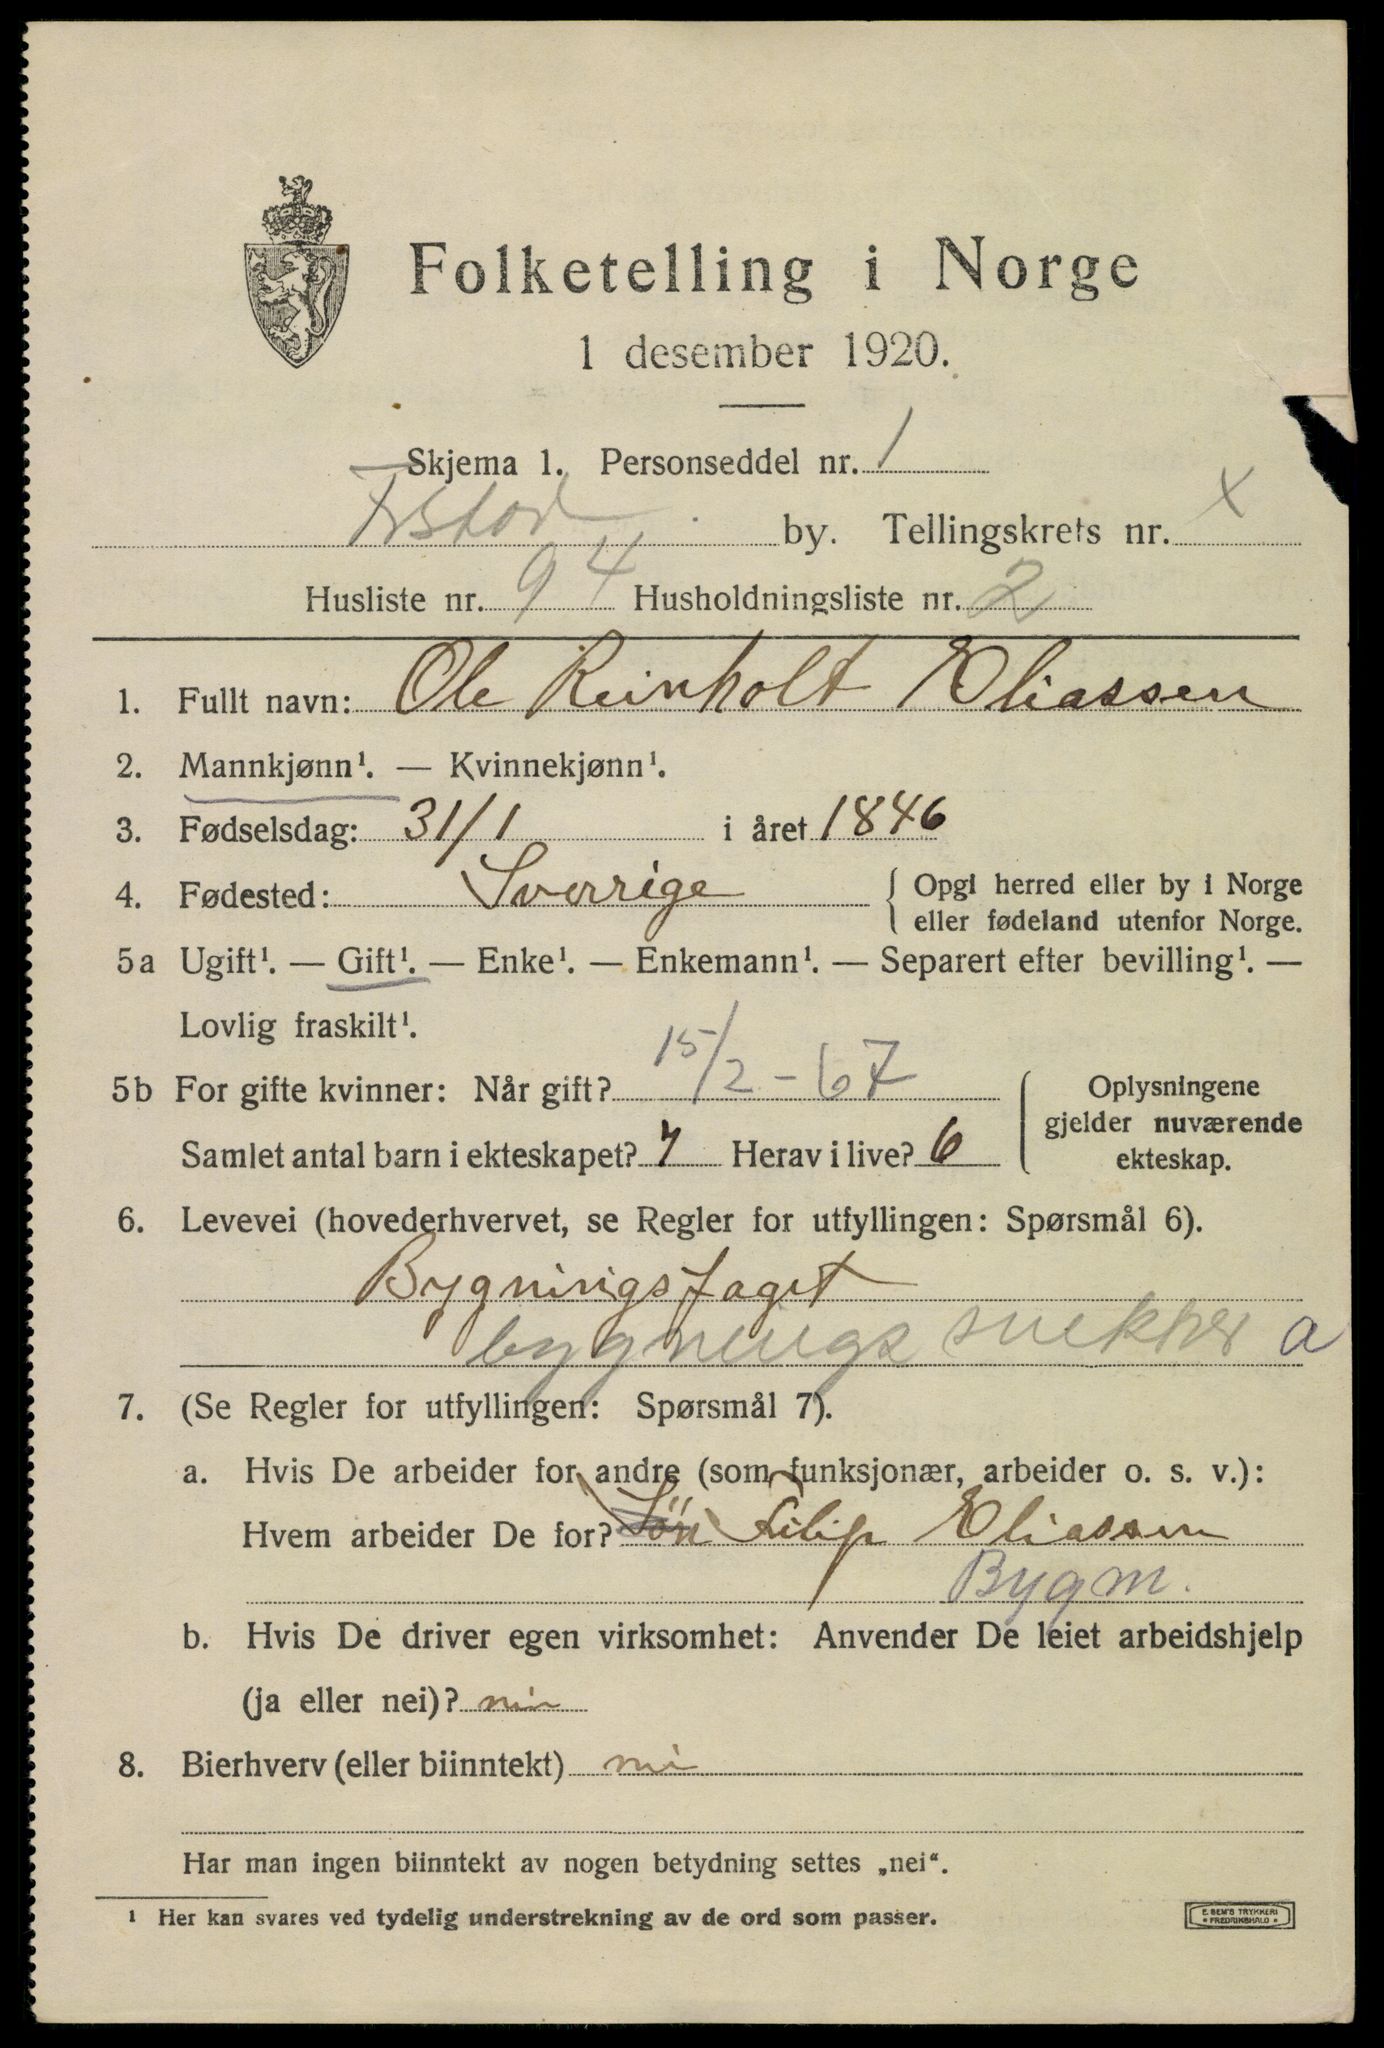 Folketelling i Norge
1 desember 1920.
Skjema 1. Personseddel nr. 1
Frstad by. Tellingskrets nr. x
Husliste nr. 94 Husholdningsliste nr. 2
1. Fullt navn: Ole Reinholt Eliassen
2. Mannkjønn¹. — Kvinnekjønn¹.
3. Fødselsdag: 31/1 i året 1846
4. Fødested: Sverrige { Opgi herred eller by i Norge
eller fødeland utenfor Norge.
5a Ugift¹. — Gift¹. — Enke¹. — Enkemann¹. — Separert efter bevilling¹. —
Lovlig fraskilt¹.
5b For gifte kvinner: Når gift? 15/2-67
Samlet antal barn i ekteskapet? 7 Herav i live? 6
Oplysningene
gjelder nuværende
ekteskap.
6. Levevei (hovederhvervet, se Regler for utfyllingen: Spørsmål 6).
Bygningsfaget
bygningssnekker a
7. (Se Regler for utfyllingen: Spørsmål 7).
a. Hvis De arbeider for andre (som funksjonær, arbeider o. s. v.):
Hvem arbeider De for? Sön Filip Eliassen
Bygm.
b. Hvis De driver egen virksomhet: Anvender De leiet arbeidshjelp
(ja eller nei)? nei
8. Bierhverv (eller biinntekt) nei
Har man ingen biinntekt av nogen betydning settes „nei“.
¹ Her kan svares ved tydelig understrekning av de ord som passer.
E. SEM'S TRYKKERI
• FREDRIKSHALD •